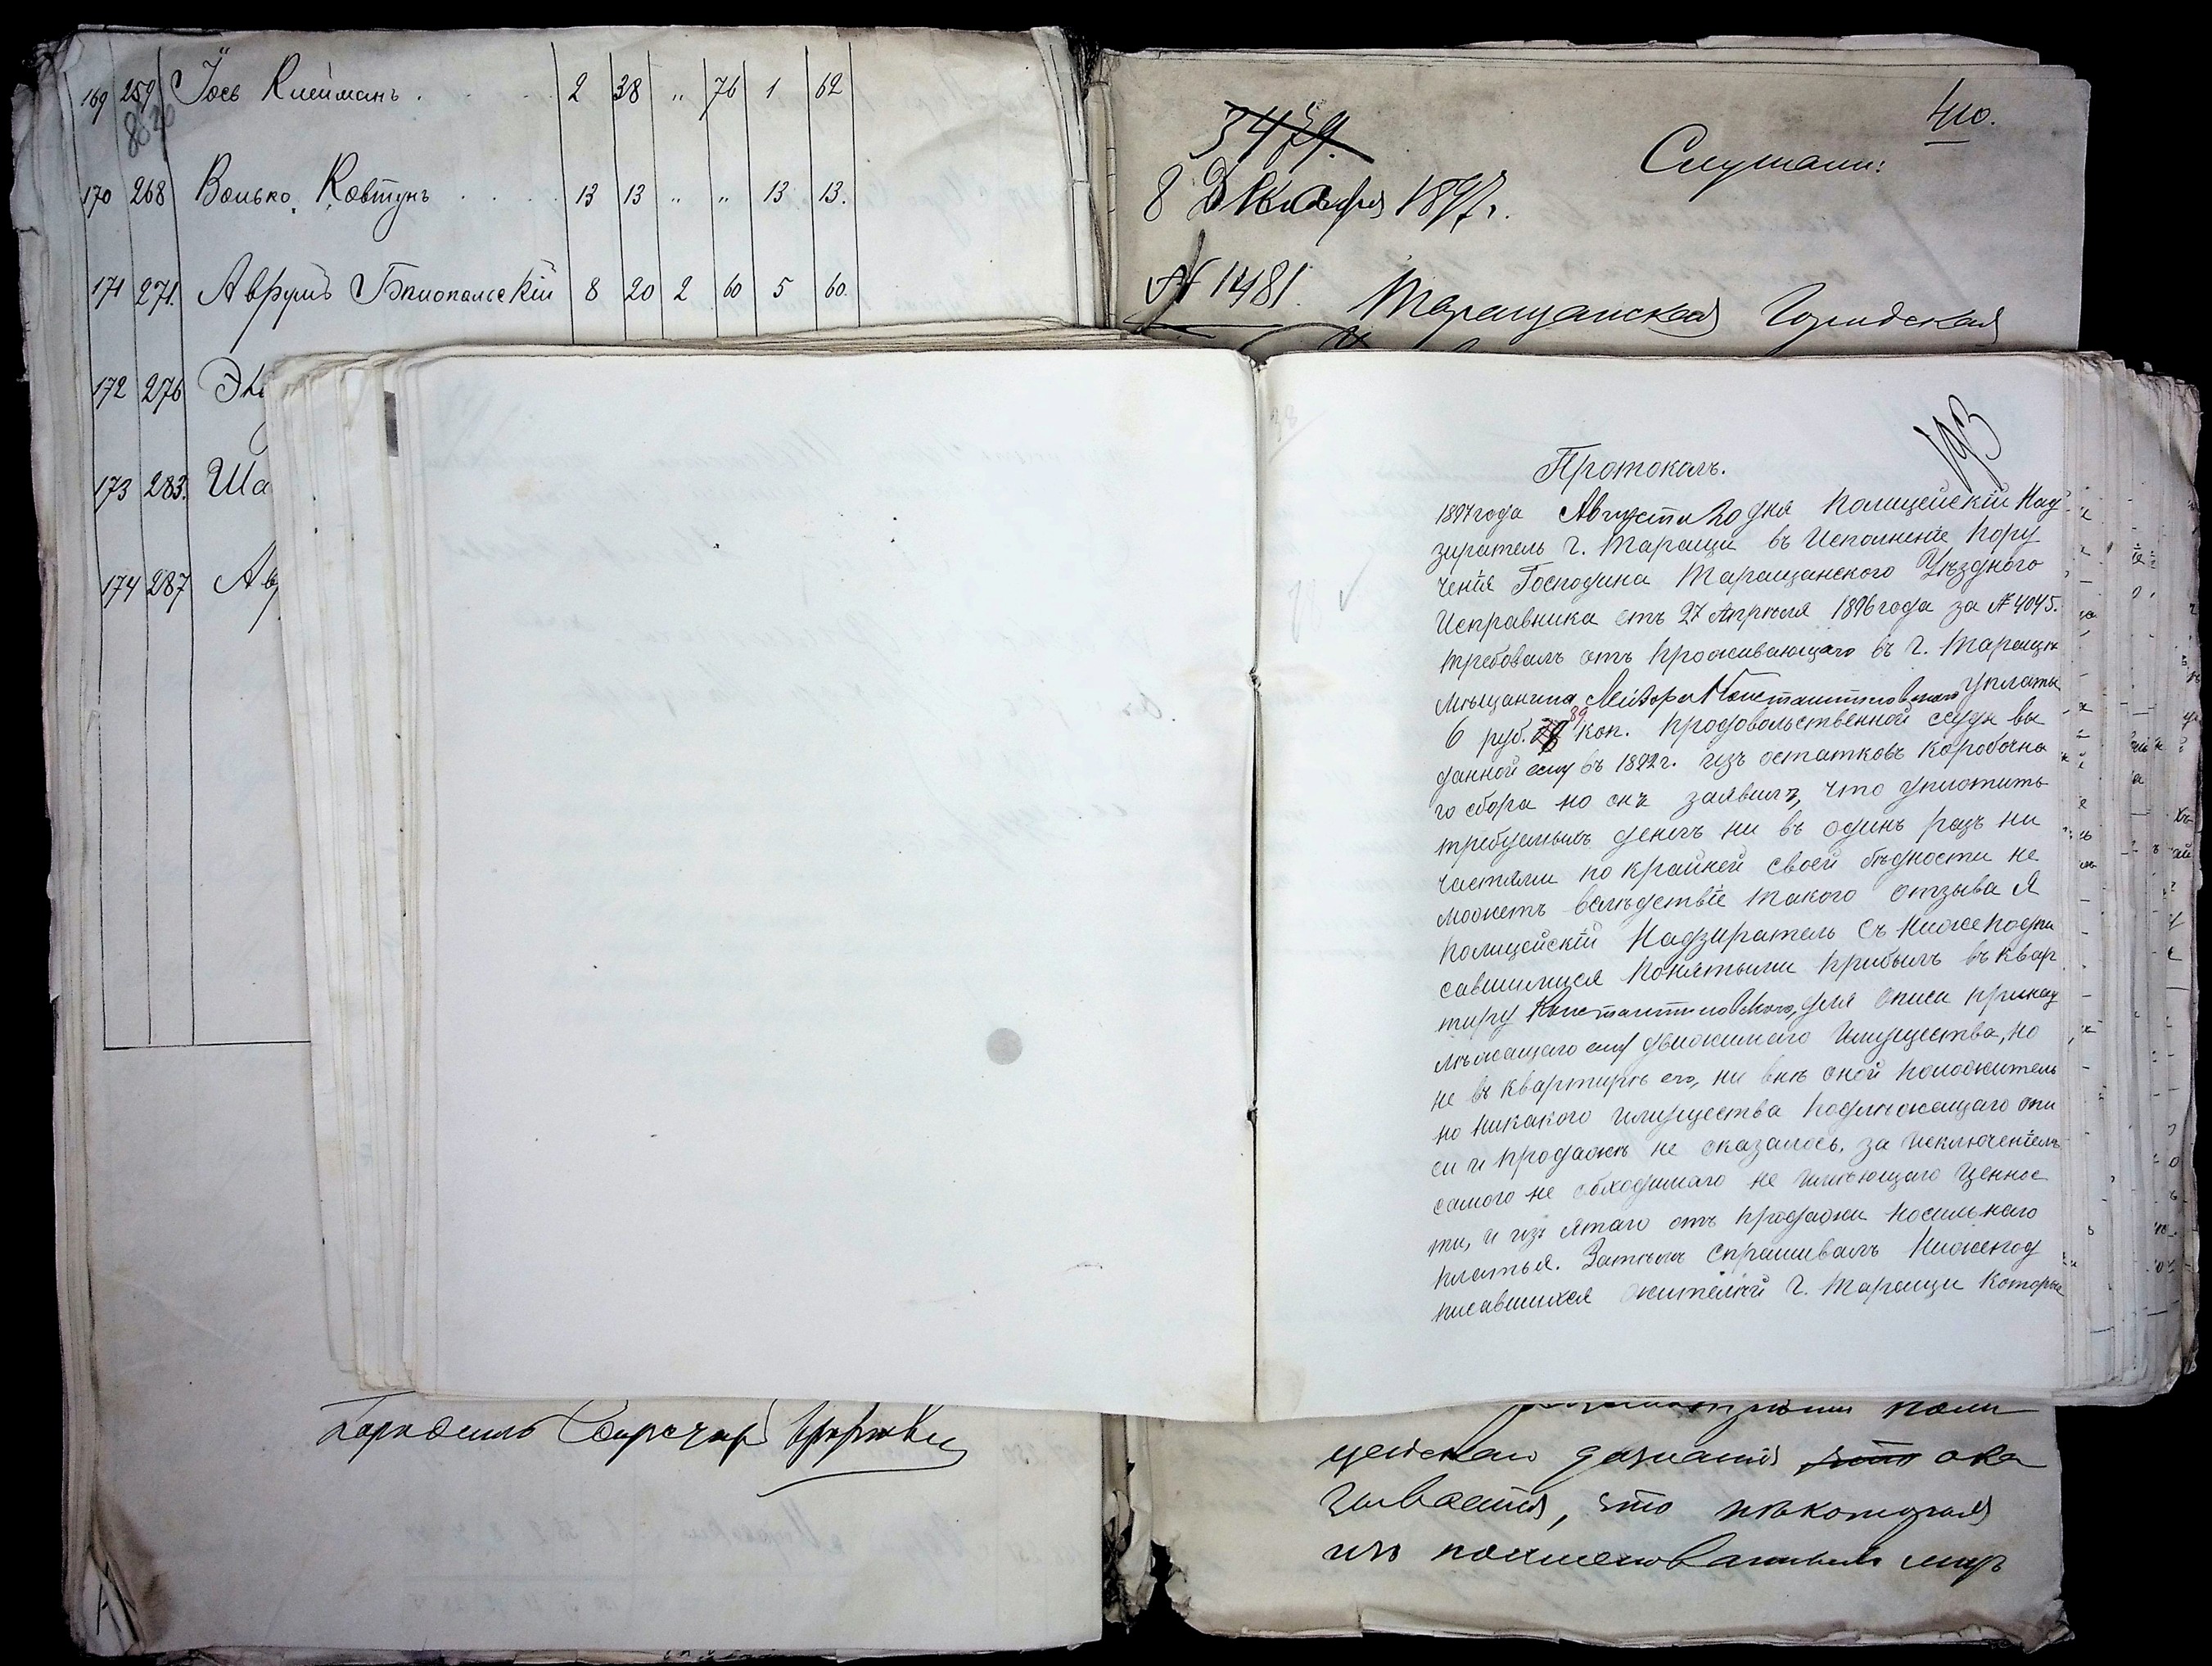 169 259 Іось Клейманъ . . . 2 38 „ 76 1 62
170 268 Волько Ковтунъ . . . 13 13 „ „ 13 13.
171 271. Аврумъ Бялопольскій 8 20 2 60 5 60.
172 276
173 283. Ша
174 287 Ав
410.
3479.
Слушали:
8 Декабря 1897 г.
№ 1481.
Таращанская Городская
193
Протоколъ.
1897 года Августа 20 дня Полицейскій Над
зиратель г. Таращи въ исполненіе пору
ченія Господина Таращанского Уѣздного
Исправника отъ 27 Апрѣля 1896 года за № 4045.
требовалъ отъ проживающаго въ г. Таращѣ
мѣщанина Мейора Константиновскаго уплаты
6 руб. 89 коп. продовольственной ссуды вы
данной ему въ 1892 г. изъ остатковъ коробочна
го сбора но онъ заявилъ, что уплотить
требуемыхъ денегъ ни въ одинъ разъ ни
частями по крайней своей бѣдности не
можетъ вслѣдствіе такого отзыва Я
Полицейскій Надзиратель съ нижеподпи
савшимися понятыми прибылъ въ квар
тиру Константиновскаго, для описи принад
лѣжащаго ему движимаго имущества, но
не въ квартирѣ его, ни внѣ оной положитель
но никакого имущества подлѣжащаго опи
си и продажѣ не оказалось, за исключеніемъ
самого не обходимаго не имѣющаго ценнос
ти, и изъ ятаго отъ продажи носильнаго
платья. Затѣмъ спрашивалъ нижепод
писавшихся жителей г. Таращи которые
поли
цейскаго дознанія что ока
зывается, что нѣкоторыя
изъ поименованныхъ лицъ